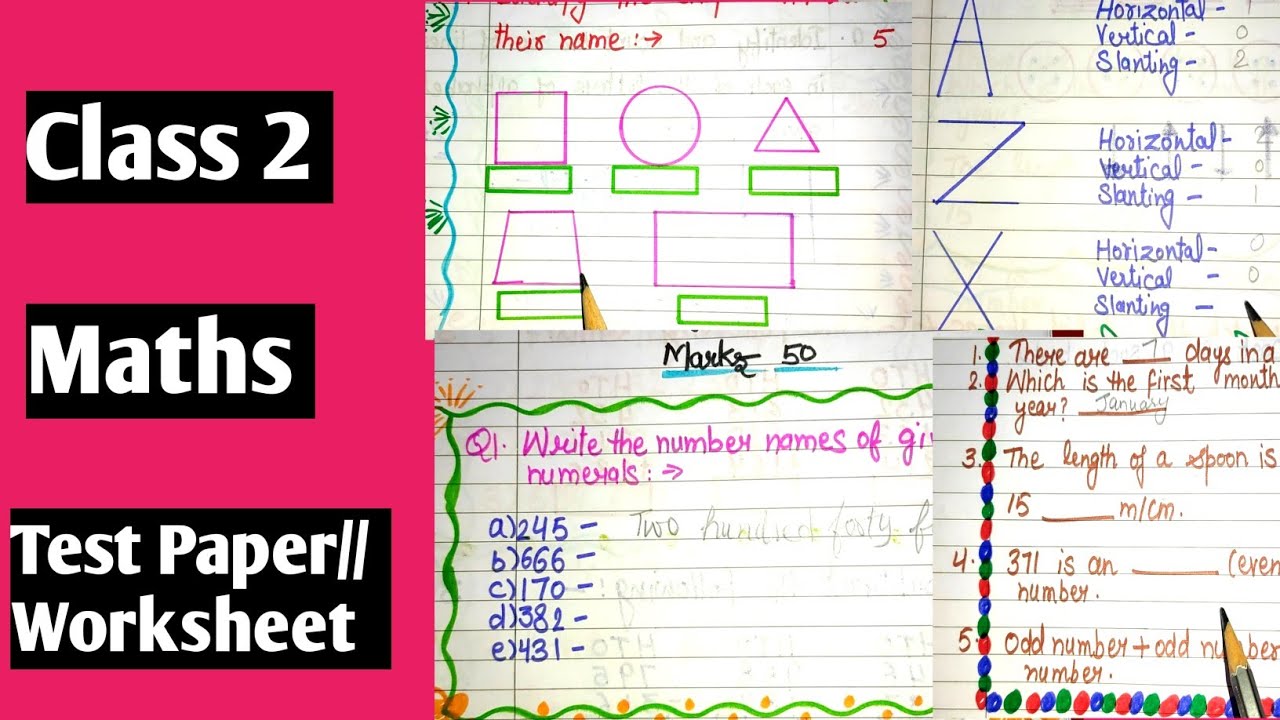 Class 2
Maths
Test Paper//
Worksheet
their name :→ 5
Horizontal - 1
Vertical - 0
Slanting - 2
A
Horizontal - 2
Vertical - 0
Slanting - 1
Z
Horizontal - 0
Vertical - 0
Slanting -
X
Marks 50
Q1. Write the number names of gi
numerals :→
a) 245 - Two hundred forty f
b) 666 -
c) 170 -
d) 382 -
e) 431 -
1. There are 7 days in a
2. Which is the first month
year? January
3. The length of a spoon is
15 ______ m/cm.
4. 371 is an ______ (even
number.
5. Odd number + odd number
number.